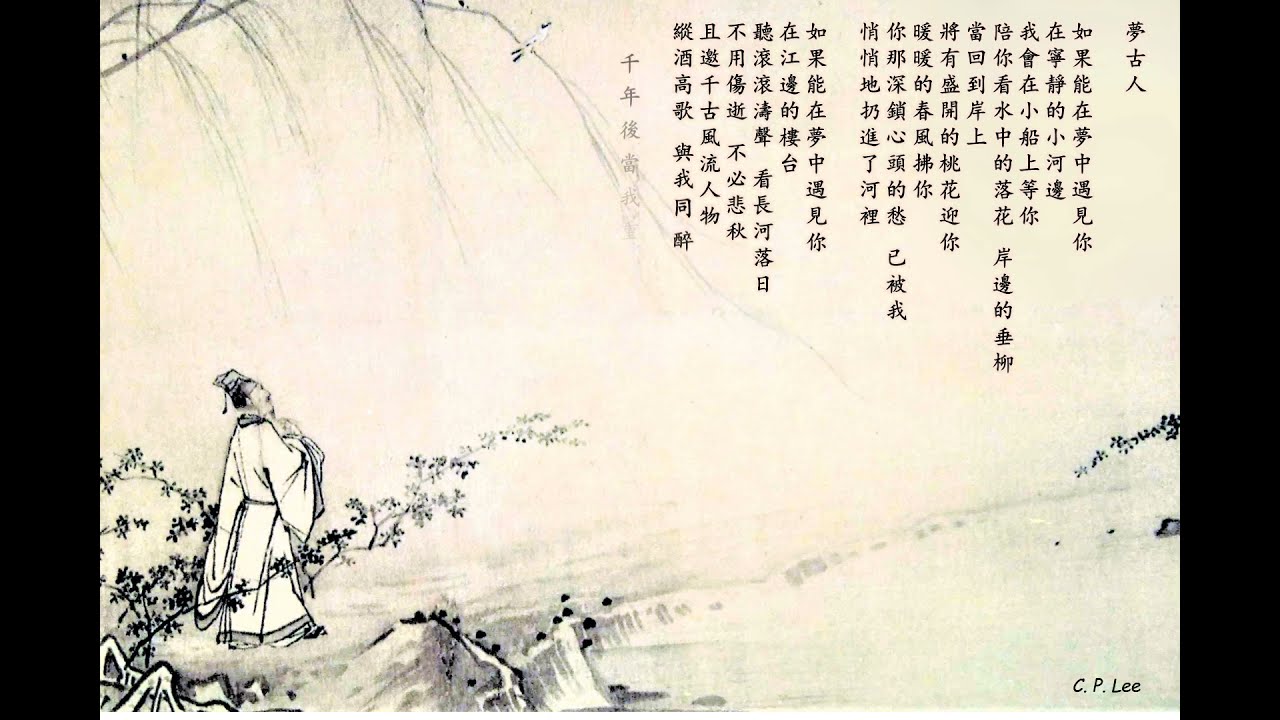 夢古人
如果能在夢中遇見你
在寧靜的小河邊
我會在小船上等你
陪你看水中的落花 岸邊的垂柳
當回到岸上
將有盛開的桃花迎你
暖暖的春風拂你
你那深鎖心頭的愁 已被我
悄悄地扔進了河裡
如果能在夢中遇見你
在江邊的樓台
聽滾滾濤聲 看長河落日
不用傷逝 不必悲秋
且邀千古風流人物
縱酒高歌 與我同醉
千年後當我
C. P. Lee